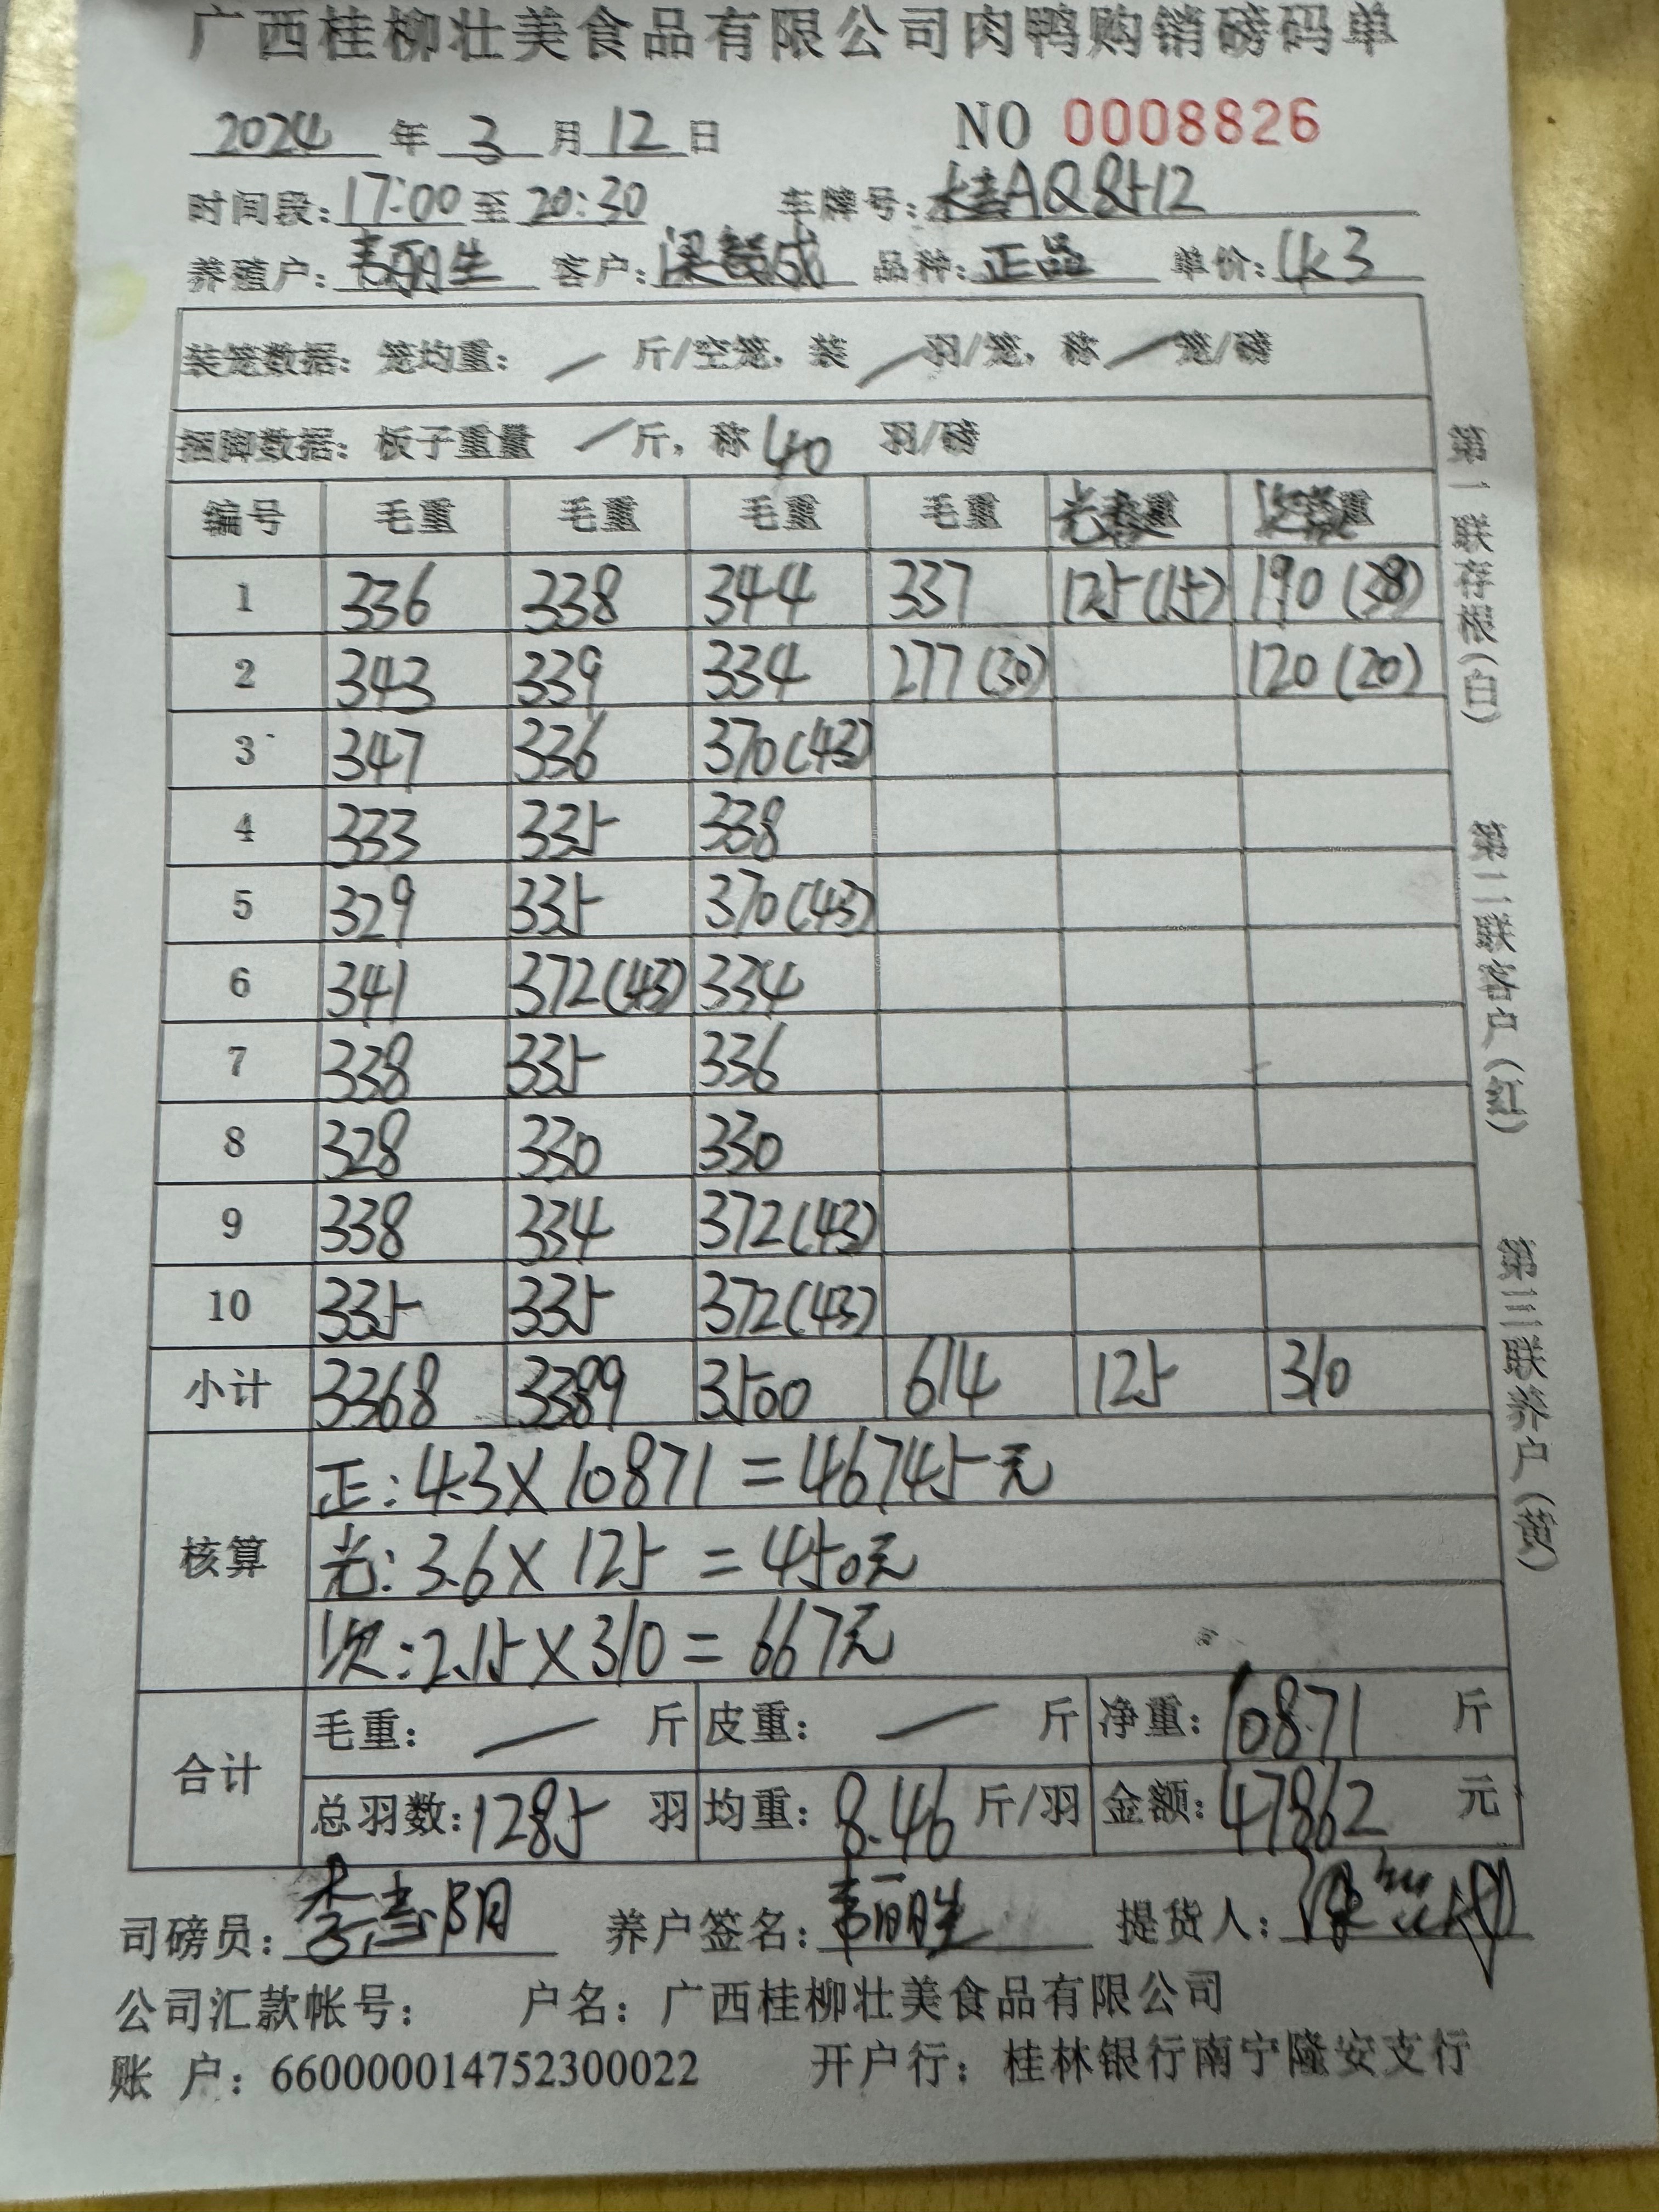 广西桂柳壮美食品有限公司肉鸭购销磅码单
2024 年 3 月 12 日 NO 0008826
时间段: 17:00 至 20:30 车牌号: 桂AQ8512
养殖户: 韦丽生 客户: 梁赞成 品种: 正品 单价: 4.3
装笼数据: 笼均重: / 斤/空笼, 装 / 羽/笼, 称 / 笼/磅
捆脚数据: 板子重量 / 斤, 称 40 羽/磅
编号 毛重 毛重 毛重 毛重 重 重
1 336 338 344 337 125(15) 190(38)
2 343 339 334 277(30) 120(20)
3 347 336 370(43)
4 333 335 338
5 329 335 370(43)
6 341 372(43) 334
7 338 335 336
8 328 330 330
9 338 334 372(43)
10 335 335 372(43)
小计 3368 3389 3500 614 125 310
核算
正: 4.3×10871=46745元
光: 3.6×125=450元
次: 2.15×310=667元
合计
毛重: / 斤 皮重: / 斤 净重: 10871 斤
总羽数: 1285 羽 均重: 8.46 斤/羽 金额: 47862 元
司磅员: 养户签名: 韦丽生 提货人:
公司汇款帐号: 户名: 广西桂柳壮美食品有限公司
账 户: 660000014752300022 开户行: 桂林银行南宁隆安支行
第一联存根(白)
第二联客户(红)
第三联养户(黄)